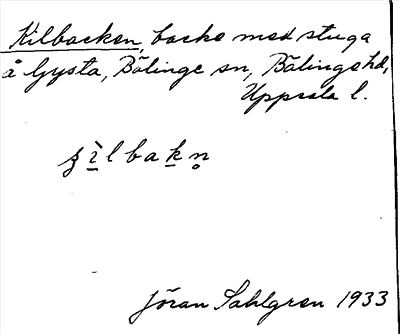 Kilbacken, backe med stuga
å Gysta, Bälinge sn, Bälinge hd,
Uppsala l.
ʒ ì l b a k n̥
Jöran Sahlgren 1933